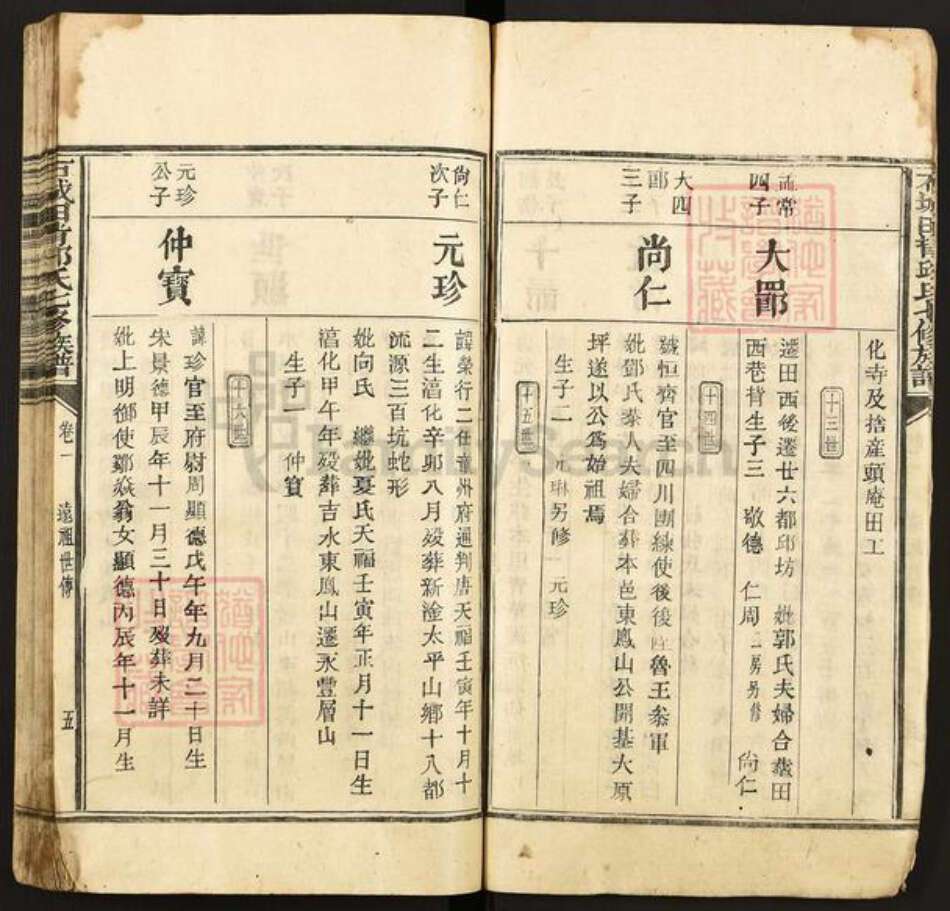 化寺及捨產頭庵田工
十三世
孟常四子
大鄖
遷田西後遷廿六都邱坊 妣郭氏夫婦合葬田
西巷背生子三 敬德 仁周二房另修 尚仁
十四世
大四鄖三子
尚仁
號恒齋官至四川團練使後陞魯王叅軍
妣鄧氏泰人夫婦合葬本邑東鳳山公開基大原
坪遂以公爲始祖焉
生子二 元琳另修 元珍
十五世
尚仁次子
元珍
諱榮行二任童州府通判唐天福壬寅年十月十
二生淳化辛卯八月歿葬新淦太平山鄉十八都
流源三百坑蛇形
妣向氏 繼妣夏氏天福壬寅年正月十一日生
淳化甲午年歿葬吉水東鳳山遷永豐層山
生子一 仲寶
十六世
元珍公子
仲寶
諱珍官至府尉周顯德戊午年九月二十日生
宋景德甲辰年十一月三十日歿葬未詳
妣上明鄉使鄒焱翁女顯德丙辰年十一月生
石城田背邱氏七修族譜 卷一 遠祖世傳 五